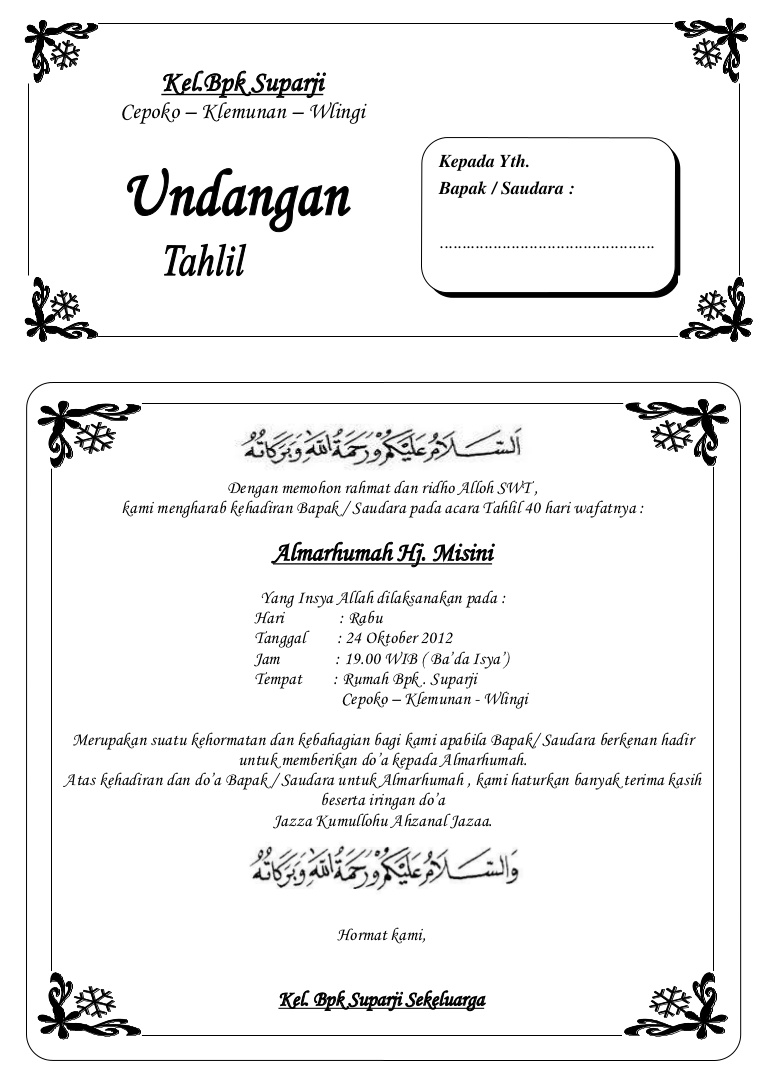 Kel.Bpk Suparji
Cepoko – Klemunan – Wlingi
Undangan
Tahlil
Kepada Yth.
Bapak / Saudara :
................................................
اَلسَّلَامُ عَلَيْكُمْ وَرَحْمَةُ اللهِ وَبَرَكَاتُهُ
Dengan memohon rahmat dan ridho Alloh SWT ,
kami mengharab kehadiran Bapak / Saudara pada acara Tahlil 40 hari wafatnya :
Almarhumah Hj. Misini
Yang Insya Allah dilaksanakan pada :
Hari : Rabu
Tanggal : 24 Oktober 2012
Jam : 19.00 WIB ( Ba’da Isya’)
Tempat : Rumah Bpk . Suparji
Cepoko – Klemunan - Wlingi
Merupakan suatu kehormatan dan kebahagian bagi kami apabila Bapak/ Saudara berkenan hadir
untuk memberikan do’a kepada Almarhumah.
Atas kehadiran dan do’a Bapak / Saudara untuk Almarhumah , kami haturkan banyak terima kasih
beserta iringan do’a
Jazza Kumullohu Ahzanal Jazaa.
وَالسَّلَامُ عَلَيْكُمْ وَرَحْمَةُ اللهِ وَبَرَكَاتُهُ
Hormat kami,
Kel. Bpk Suparji Sekeluarga